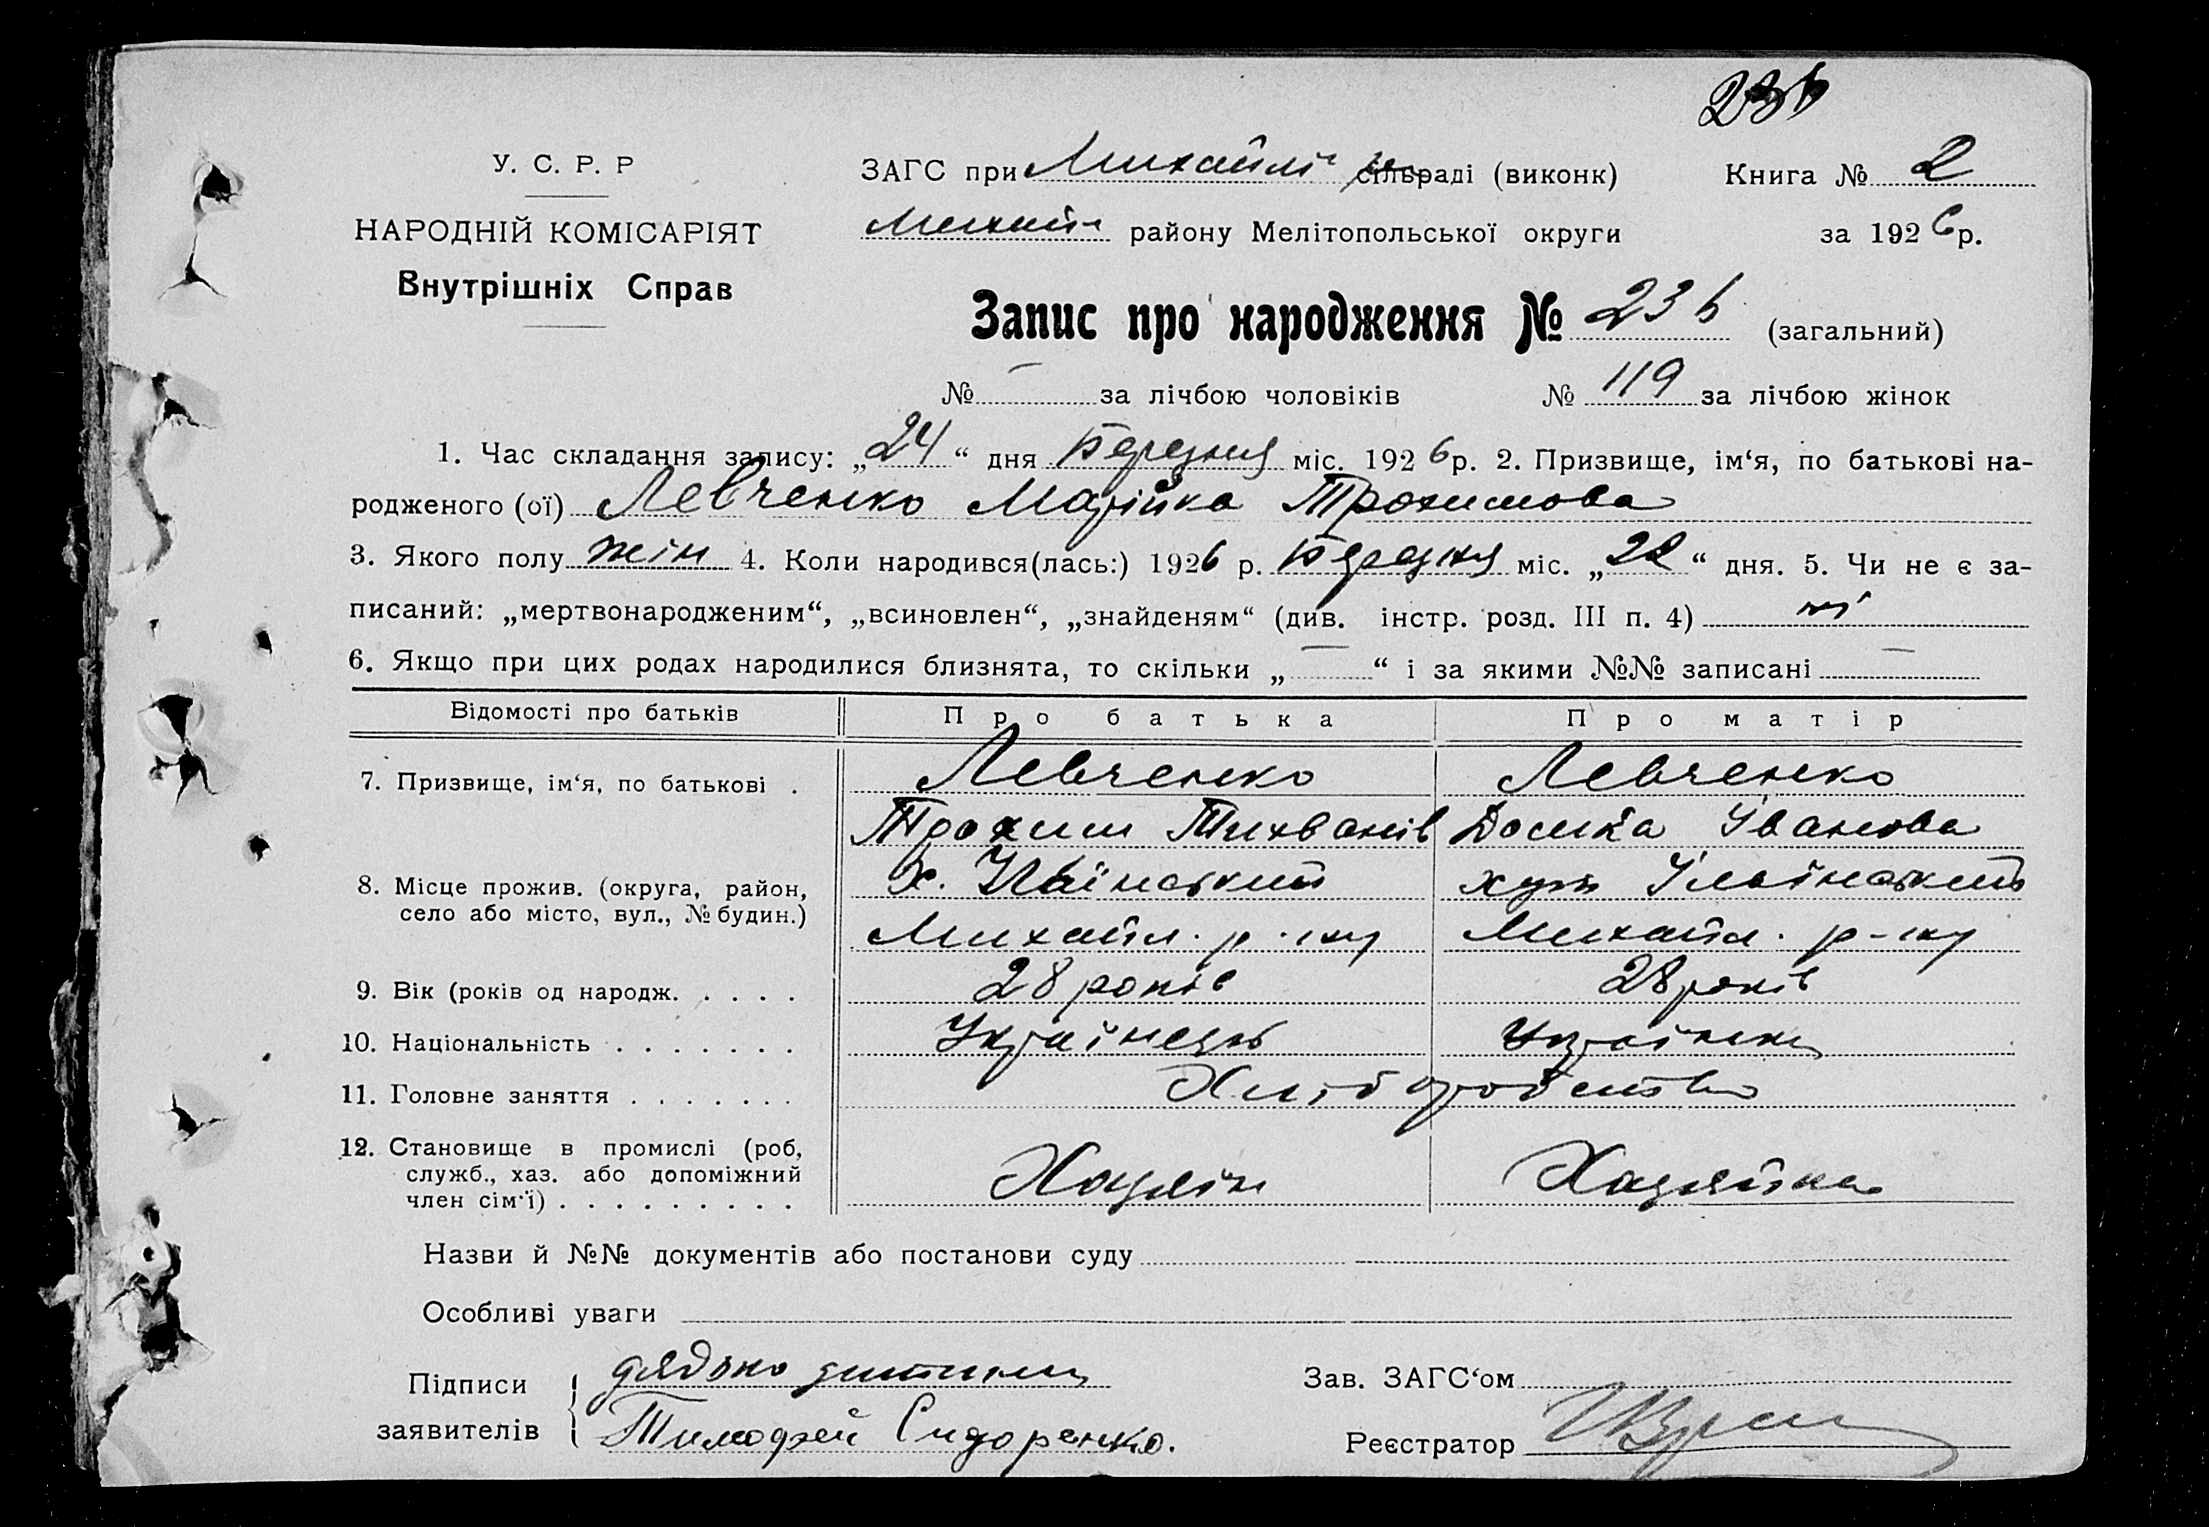 236
У. С. Р. Р
НАРОДНІЙ КОМІСАРІЯТ
Внутрішніх Справ
ЗАГС при Михайлі сільраді (виконк)
Книга № 2
району Мелітопольської округи
за 1926 р.
Запис про народження № 236 (загальний)
№ — за лічбою чоловіків № 119 за лічбою жінок
1. Час складання запису: „24“ дня Березня міс. 1926 р. 2. Призвище, ім‘я, по батькові на-
родженого (ої) Левченко Марійка Трохимова
3. Якого полу жін 4. Коли народився(лась:) 1926 р. Березня міс. „22“ дня. 5. Чи не є за-
писаний: „мертвонародженим“, „всиновлен“, „знайденям“ (див. інстр. розд. III п. 4) ні
6. Якщо при цих родах народилися близнята, то скільки „—“ і за якими №№ записані —
Відомості про батьків Про батька Про матір
7. Призвище, ім‘я, по батькові . Левченко Левченко
Трохим Домка Іванова
8. Місце прожив. (округа, район, х. Ільїнський хут Ільїнський
село або місто, вул., № будин.)
Михайл. р-ну Михайл. р-ну
9. Вік (років од народж. . . . . 28 років 28 років
10. Національність . . . . . . . Українець Українка
11. Головне заняття . . . . . . . Хліборобство
12. Становище в промислі (роб,
служб., хаз. або допоміжний Хазяін Хазяйка
член сім‘ї) . . . . . . . . .
Назви й №№ документів або постанови суду
Особливі уваги
Підписи дядько дитини
заявителів Тимофей Сидоренко.
Зав. ЗАГС‘ом
Реєстратор